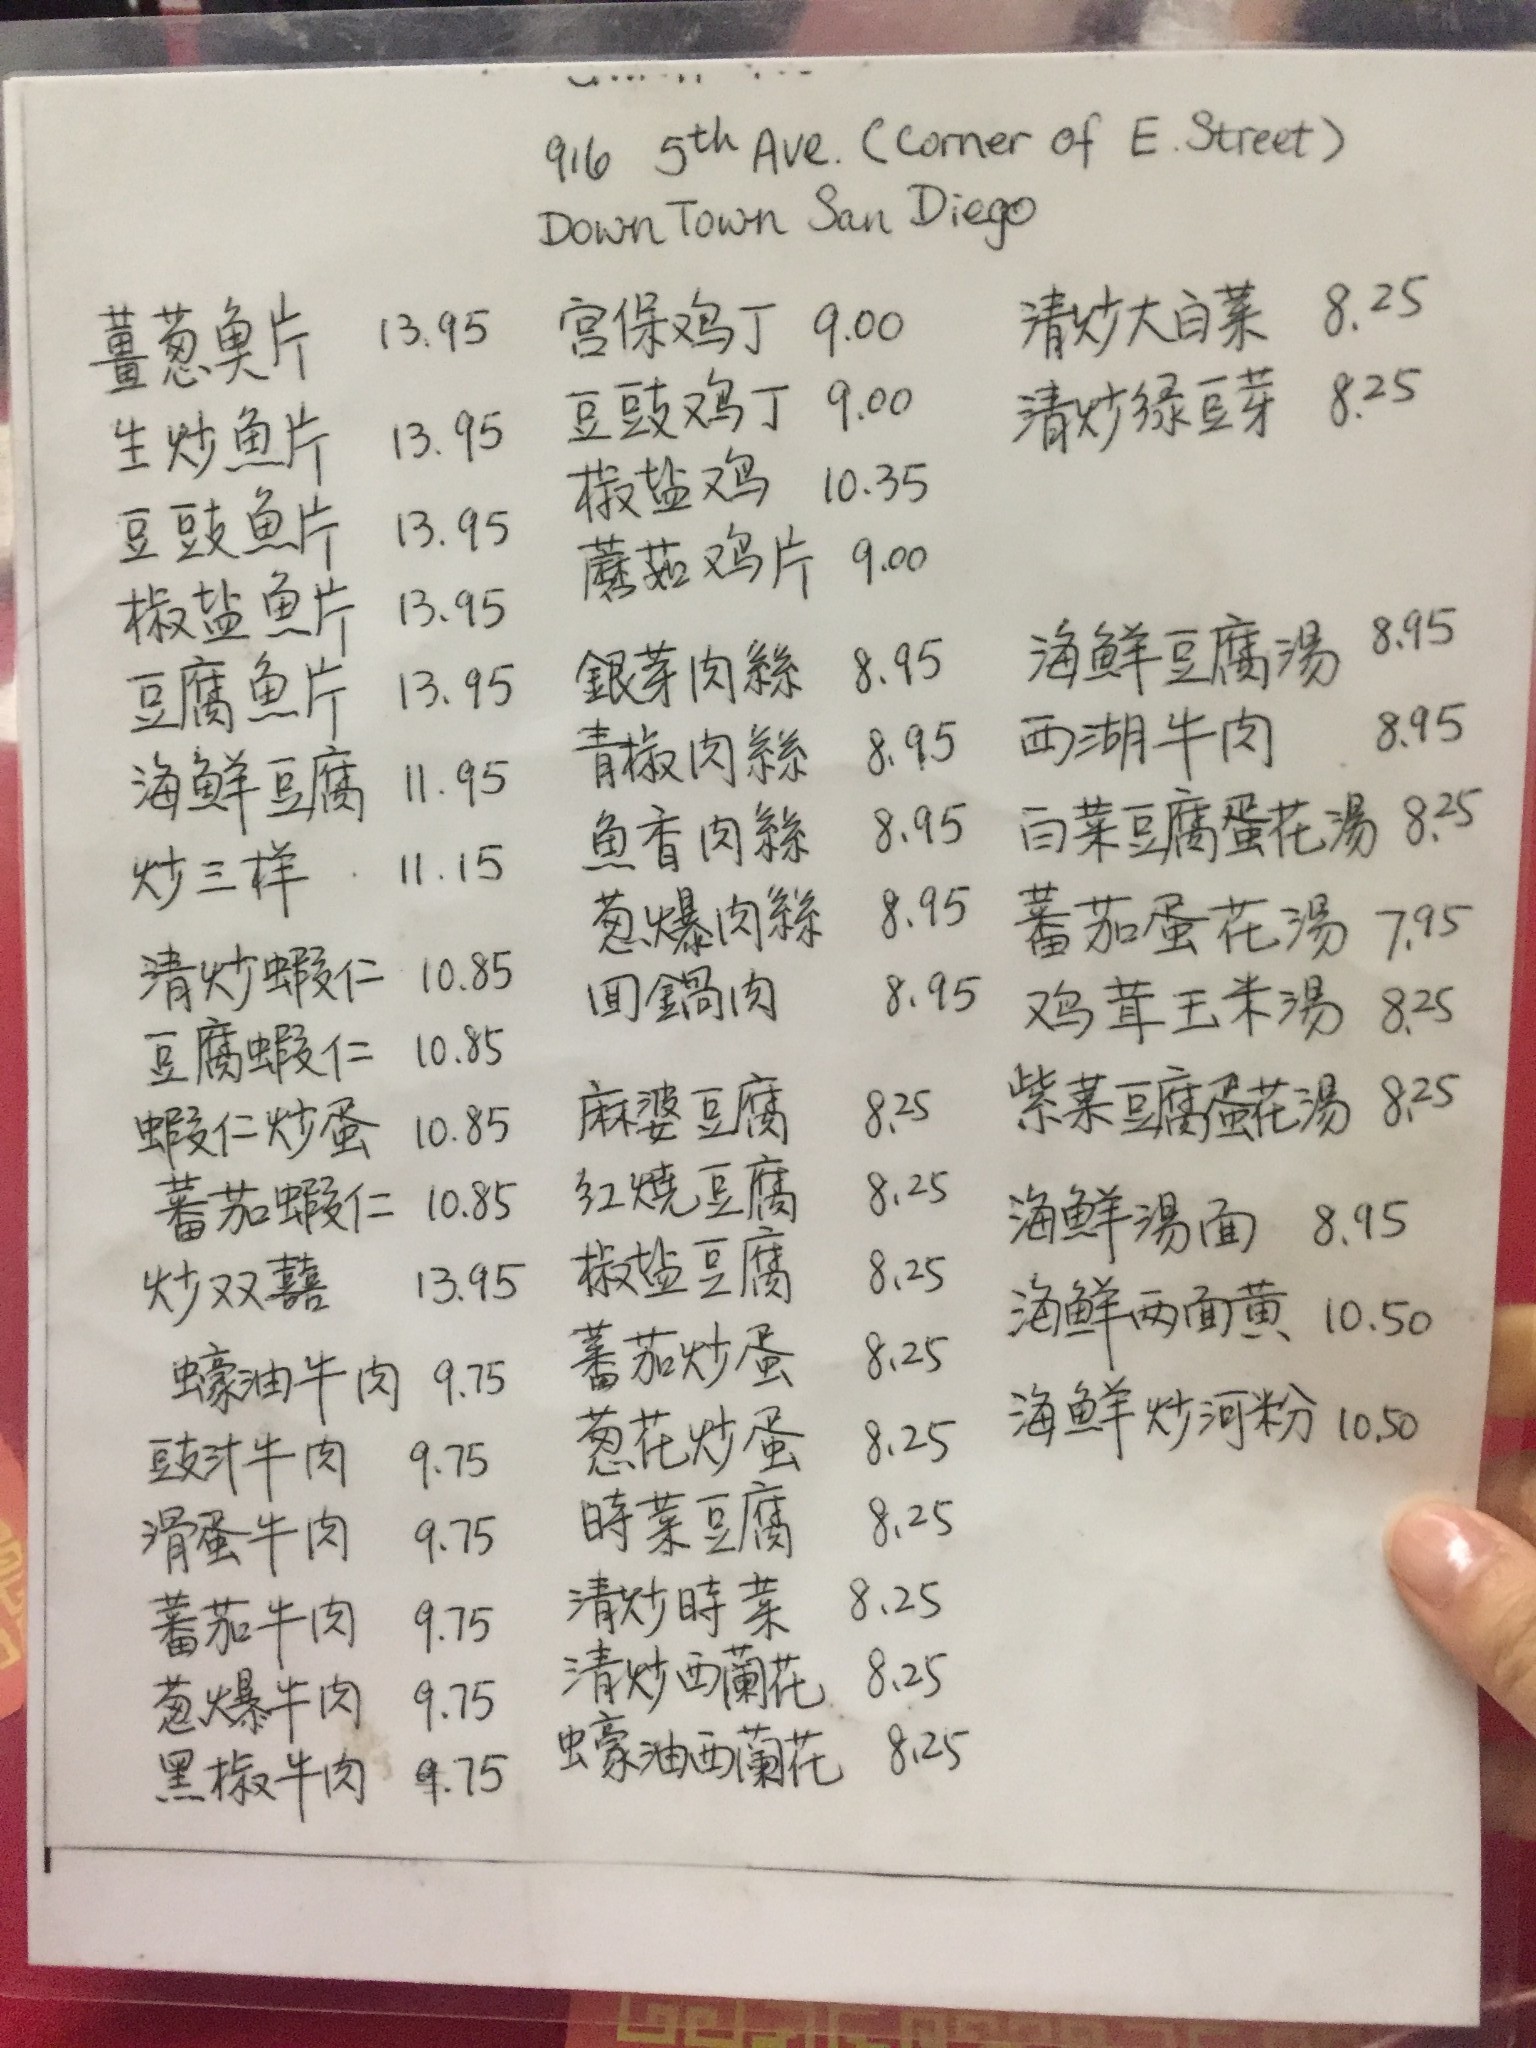 916 5th Ave. (Corner of E. Street)
DownTown San Diego
薑葱魚片 13.95
生炒魚片 13.95
豆豉魚片 13.95
椒盐魚片 13.95
豆腐魚片 13.95
海鮮豆腐 11.95
炒三样 11.15
清炒蝦仁 10.85
豆腐蝦仁 10.85
蝦仁炒蛋 10.85
蕃茄蝦仁 10.85
炒双囍 13.95
蠔油牛肉 9.75
豉汁牛肉 9.75
滑蛋牛肉 9.75
蕃茄牛肉 9.75
葱爆牛肉 9.75
黑椒牛肉 9.75
宫保鸡丁 9.00
豆豉鸡丁 9.00
椒盐鸡 10.35
蘑菇鸡片 9.00
銀芽肉絲 8.95
青椒肉絲 8.95
魚香肉絲 8.95
葱爆肉絲 8.95
回鍋肉 8.95
麻婆豆腐 8.25
紅燒豆腐 8.25
椒盐豆腐 8.25
蕃茄炒蛋 8.25
葱花炒蛋 8.25
時菜豆腐 8.25
清炒時菜 8.25
清炒西蘭花 8.25
蠔油西蘭花 8.25
清炒大白菜 8.25
清炒绿豆芽 8.25
海鮮豆腐湯 8.95
西湖牛肉 8.95
白菜豆腐蛋花湯 8.25
蕃茄蛋花湯 7.95
鸡茸玉米湯 8.25
紫菜豆腐蛋花湯 8.25
海鮮湯面 8.95
海鮮两面黄 10.50
海鮮炒河粉 10.50